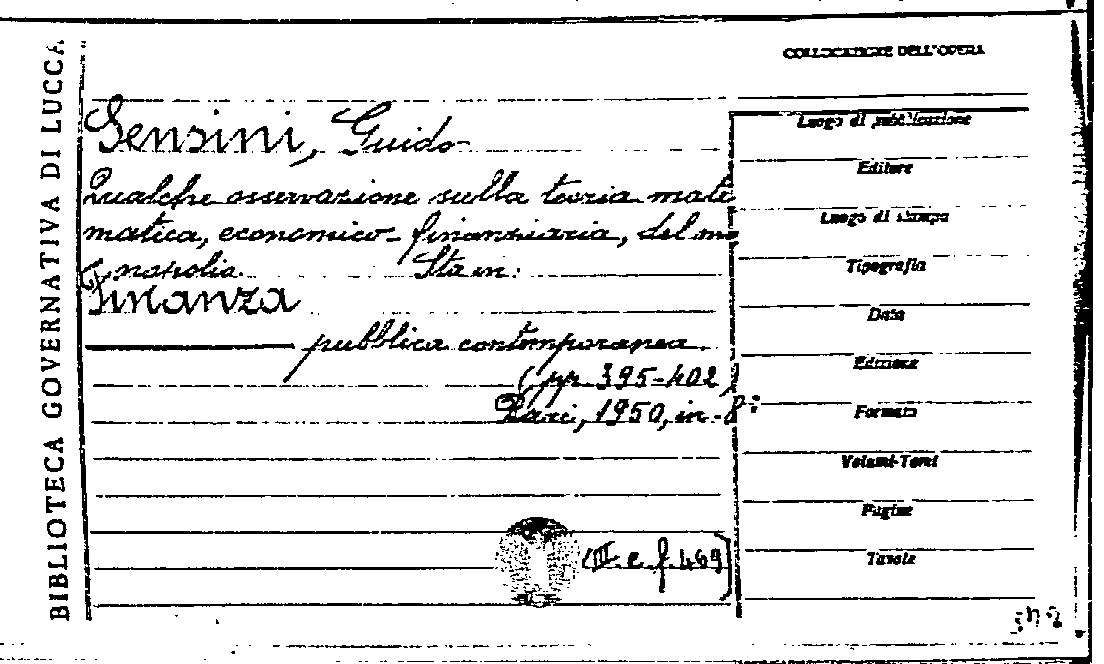 BIBLIOTECA GOVERNATIVA DI LUCCA
COLLOCAZIONE DELL'OPERA
Sensini, Guido
Qualche osservazione sulla teoria mate
matica, economico-finanziaria, del mo
nopolio. Sta in:
Finanza
pubblica contemporanea.
(pp. 395-402)
Bari, 1950, in-8°
(II. c. f. 469)
Luogo di pubblicazione
Editore
Luogo di stampa
Tipografia
Data
Edizione
Formato
Volumi-Tomi
Pagine
Tavole